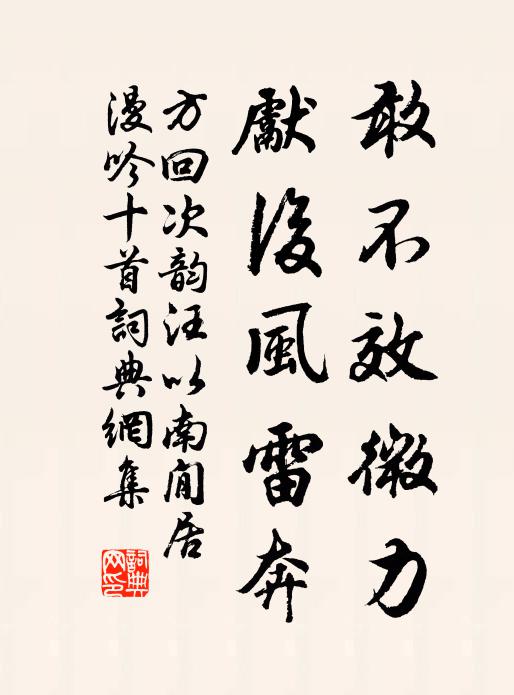 敢不效微力
獻後風雷奔
方回次韵汪以南閒居
漫吟十首詞典網集
詞典網印